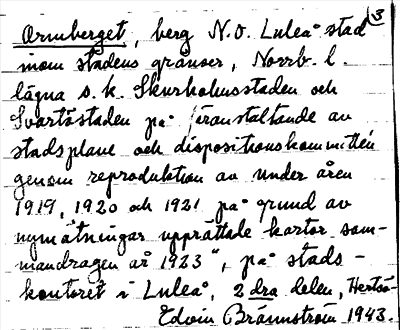 13
Ormberget, berg N.O. Luleå stad
inom stadens gränser, Norrb. l.
lägna s.k. Skurholmsstaden och
Svartöstaden på föranstaltande av
stadsplane och dispositionskommittén
genom reproduktion av under åren
1919, 1920 och 1921 på grund av
nymätningar upprättade kartor sam-
mandragen år 1923", på stads-
kontoret i Luleå, 2 dra delen, Hertsö-
Edvin Brännström 1943.